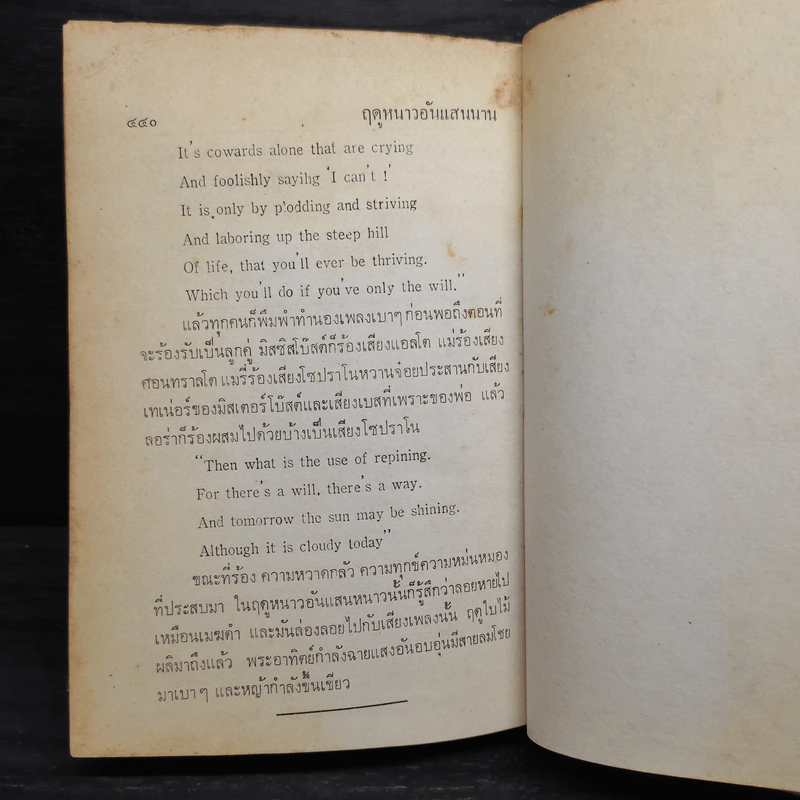 ๔๔๐
ฤดูหนาวอันแสนนาน
It's cowards alone that are crying
And foolishly sayihg 'I can't !'
It is only by plodding and striving
And laboring up the steep hill
Of life, that you'll ever be thriving.
Which you'll do if you've only the will."
แล้วทุกคนก็พึมพำทำนองเพลงเบาๆ ก่อนพอถึงตอนที่
จะร้องรับเป็นลูกคู่ มิสซิสโบ๊สต์ก็ร้องเสียงแอลโต แม่ร้องเสียง
คอนทราลโต แมรี่ร้องเสียงโซปราโนหวานจ๋อยประสานกับเสียง
เทเน่อร์ของมิสเตอร์โบ๊สต์และเสียงเบสที่เพราะของพ่อ แล้ว
ลอร่าก็ร้องผสมไปด้วยบ้างเป็นเสียงโซปราโน
"Then what is the use of repining.
For there's a will, there's a way.
And tomorrow the sun may be shining.
Although it is cloudy today"
ขณะที่ร้อง ความหวาดกลัว ความทุกข์ความหม่นหมอง
ที่ประสบมา ในฤดูหนาวอันแสนหนาวนั้นก็รู้สึกว่าลอยหายไป
เหมือนเมฆดำ และมันล่องลอยไปกับเสียงเพลงนั้น ฤดูใบไม้
ผลิมาถึงแล้ว พระอาทิตย์กำลังฉายแสงอันอบอุ่นมีสายลมโชย
มาเบาๆ และหญ้ากำลังขึ้นเขียว